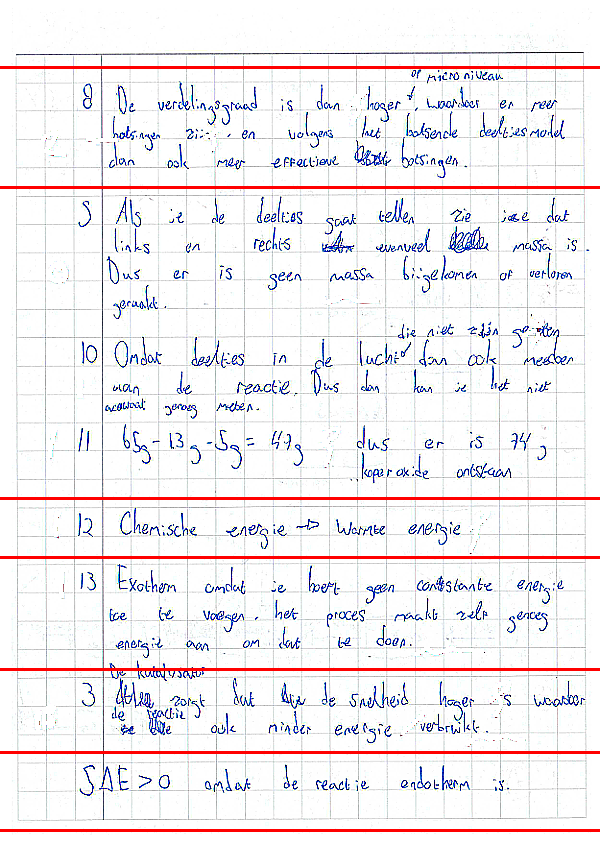 op microniveau
8 De verdelingsgraad is dan hoger, waardoor er meer
botsingen zijn en volgens het botsende deeltjes model
dan ook meer effectieve botsingen.
9 Als je de deeltjes gaat tellen zie je dat
links en rechts evenveel massa is.
Dus er is geen massa bijgekomen of verloren
geraakt.
die niet zijn gemeten
10 Omdat deeltjes in de lucht dan ook meedoen
aan de reactie. Dus dan kan je het niet
accuraat genoeg meten.
11 65g - 13g - 5g = 47g dus er is 74 g
koperoxide ontstaan
12 Chemische energie → Warmte energie
13 Exotherm omdat je hoeft geen constante energie
toe te voegen. het proces maakt zelf genoeg
energie aan om dat te doen.
De katalysator
3 zorgt dat de snelheid hoger is waardoor
de reactie ook minder energie verbruikt.
5 ΔE > 0 omdat de reactie endotherm is.